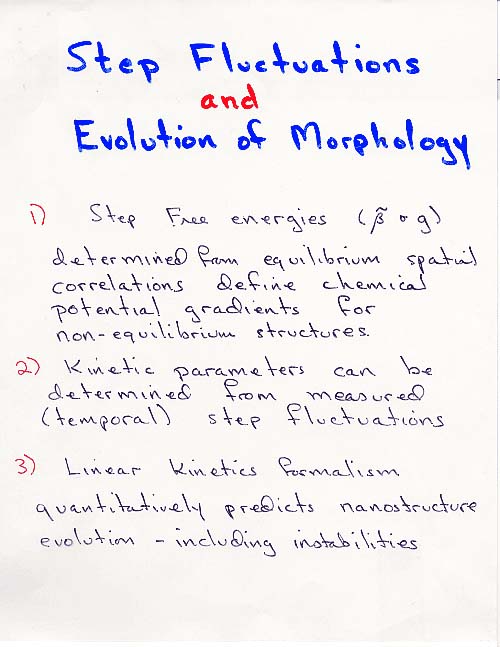 Step Fluctuations
and
Evolution of Morphology
1) Step Free energies (β̃ or g)
determined from equilibrium spatial
correlations define chemical
potential gradients for
non-equilibrium structures.
2) Kinetic parameters can be
determined from measured
(temporal) step fluctuations
3) Linear kinetics formalism
quantitatively predicts nanostructure
evolution - including instabilities